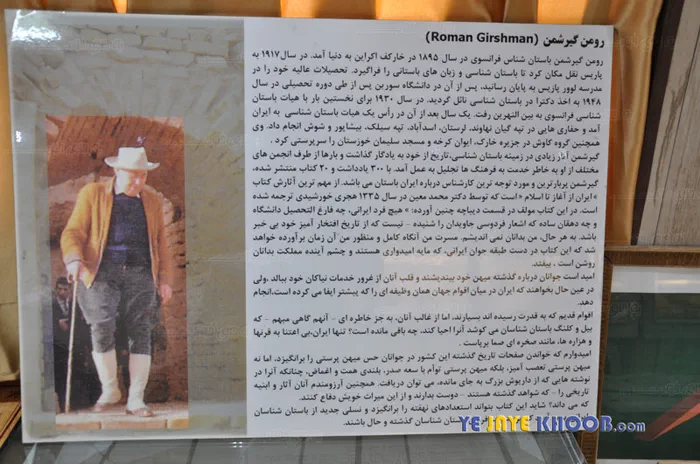 رومن گیرشمن (Roman Girshman)
رومن گیرشمن باستان شناس فرانسوی در سال ۱۸۹۵ در خارکف اکراین به دنیا آمد. در سال ۱۹۱۷ به
پاریس نقل مکان کرد تا باستان شناسی و زبان های باستانی را فراگیرد. تحصیلات عالیه خود را در
مدرسه لوور پاریس به پایان رسانید، پس از آن در دانشگاه سوربن پس از طی دوره تحصیلی در سال
۱۹۴۸ به اخذ دکترا در باستان شناسی نائل گردید. در سال ۱۹۳۰ برای نخستین بار با هیات باستان
شناسی فرانسوی به بین النهرین رفت. یک سال بعد از آن در رأس یک هیات باستان شناسی به ایران
آمد و حفاری هایی در تپه گیان نهاوند، لرستان، اسدآباد، تپه سیلک، بیشاپور و شوش انجام داد. وی
همچنین گروه کاوش در جزیره خارک، ایوان کرخه و مسجد سلیمان خوزستان را سرپرستی کرد .
گیرشمن آثار زیادی در زمینه باستان شناسی، تاریخ از خود به یادگار گذاشت و بارها از طرف انجمن های
مختلف از او به خاطر خدمت به فرهنگ ها تجلیل به عمل آمد. با ۳۰۰ یادداشت و ۲۰ کتاب منتشر شده،
گیرشمن پربارترین و مورد توجه ترین کارشناس درباره ایران باستان می باشد. از مهم ترین آثارش کتاب
» ایران از آغاز تا اسلام « است که توسط دکتر محمد معین در سال ۱۳۳۵ هجری خورشیدی ترجمه شده
است. در این کتاب مولف در قسمت دیباچه چنین آورده: » هیچ فرد ایرانی، چه فارغ التحصیل دانشگاه
و چه دهقان ساده که اشعار فردوسی جاویدان را شنیده - نیست که از تاریخ افتخار آمیز خود بی خبر
باشد. به هر حال، من بدانان نمی اندیشم. مسرت من آنگاه کامل و منظور من آن زمان برآورده خواهد
شد که این کتاب در دست طبقه جوان ایرانی، که مایه امیدواری هستند و چشم آینده مملکت بدانان
روشن است ، بیفتد.
امید است جوانان درباره گذشته میهن خود بیندیشند و قلب آنان از غرور خدمات نیاکان خود ببالد ،ولی
در عین حال بخواهند که ایران در میان اقوام جهان همان وظیفه ای را که پیشتر ایفا می کرده است،انجام
دهد.
اقوام قدیم که به قدرت رسیده اند بسیارند، اما از غالب آنان، به جز خاطره ای - آنهم گاهی مبهم - که
بیل و کلنگ باستان شناسان می کوشد آنرا احیا کند، چه باقی مانده است؟ تنها ایران،بی اعتنا به قرنها
و هزاره ها، مانند صخره ای صما برپاست .
امیدوارم که خواندن صفحات تاریخ گذشته این کشور در جوانان حس میهن پرستی را برانگیزد، اما نه
میهن پرستی تعصب آمیز، بلکه میهن پرستی توأم با سعه صدر، بلندی همت و اغماض، چنانکه آنرا در
نوشته هایی که از داریوش بزرگ به جای مانده، می توان دریافت. همچنین آرزومندم آنان آثار و ابنیه
تاریخی را - که شواهد گذشته هستند - دوست بدارند و از این میراث خویش دفاع کنند.
که می داند؟ شاید این کتاب بتواند استعدادهای نهفته را برانگیزد و نسلی جدید از باستان شناسان
ستان شناسان گذشته و حال باشند.
YE JAYE KHOOB.com